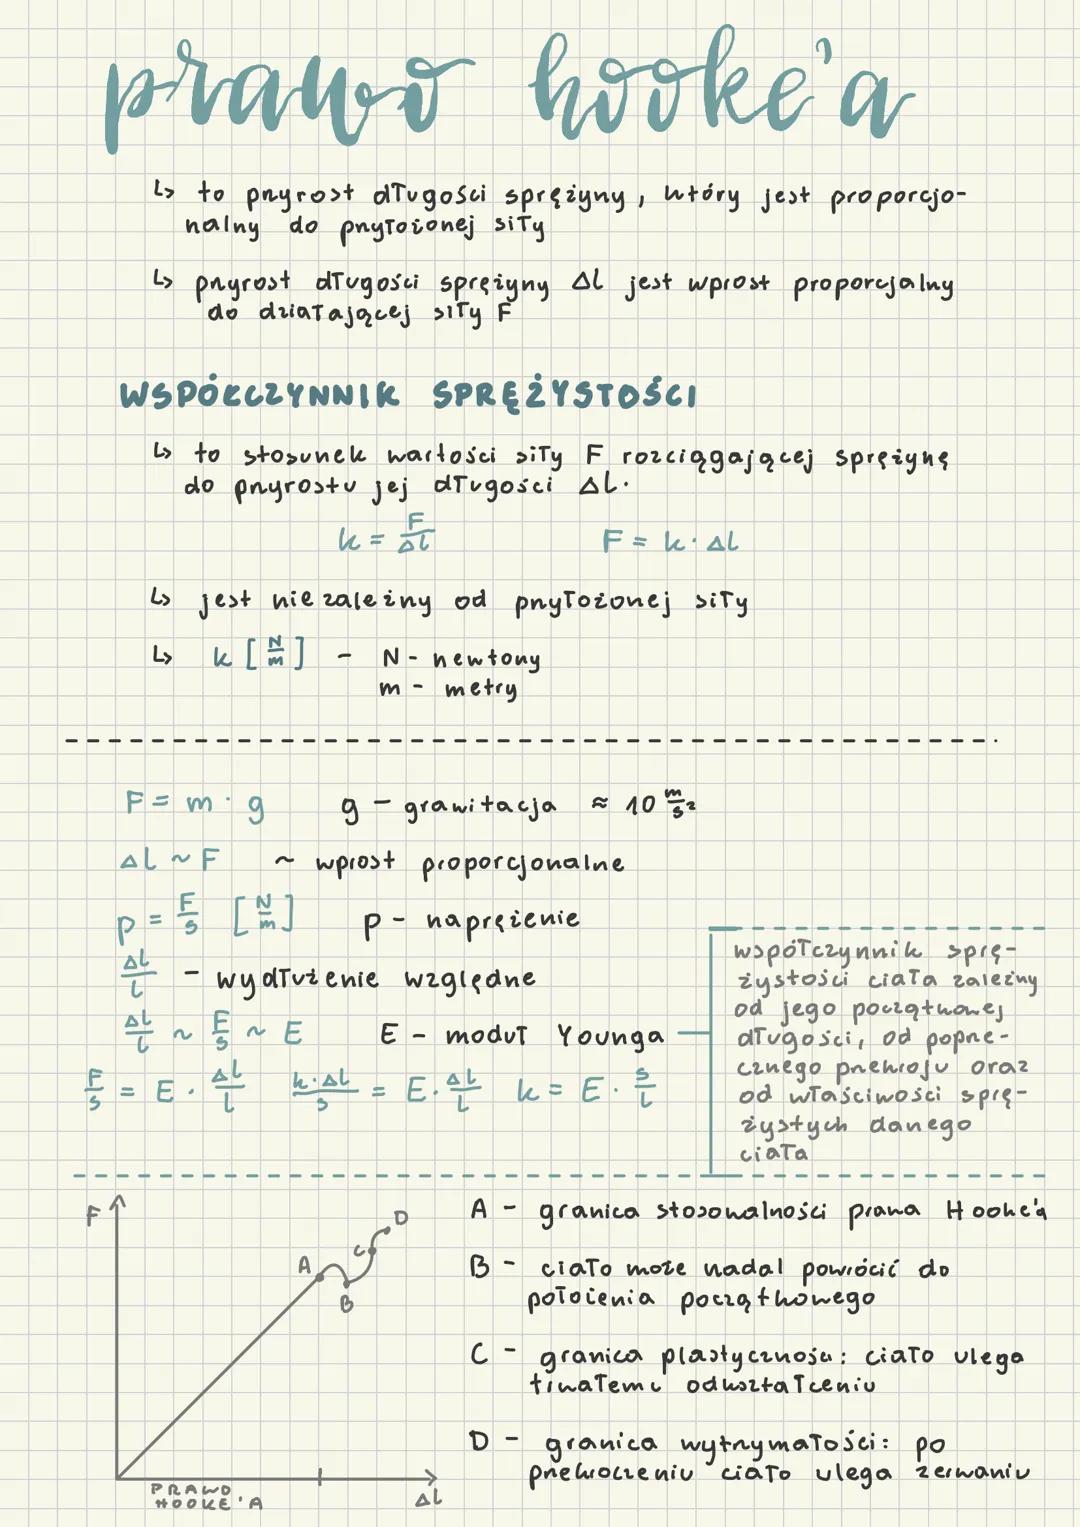 prawo hooke'a
↳ to przyrost długości sprężyny, który jest proporcjo-
nalny do przyłożonej siły
↳ przyrost długości sprężyny Δl jest wprost proporcjalny
do działającej siły F
WSPÓŁCZYNNIK SPRĘŻYSTOŚCI
↳ to stosunek wartości siły F rozciągającej sprężynę
do przyrostu jej długości Δl.
k = F/Δl F = k · Δl
↳ jest niezależny od przyłożonej siły
↳ k [N/m] - N - newtony
m - metry
F = m · g g - grawitacja ≈ 10 m/s²
Δl ~ F ~ wprost proporcjonalne
p = F/s [N/m] p - naprężenie
Δl/l - wydłużenie względne
Δl/l ~ F/s ~ E E - moduł Younga
F/s = E · Δl/l k·Δl/s = E · Δl/l k = E · s/l
współczynnik sprę-
żystości ciała zależny
od jego początkowej
długości, od poprze-
cznego przekroju oraz
od właściwości sprę-
żystych danego
ciała
F
A
B
C
D
PRAWO
HOOKE'A
Δl
A - granica stosowalności prawa Hooke'a
B - ciało może nadal powrócić do
położenia początkowego
C - granica plastyczności: ciało ulega
trwałemu odkształceniu
D - granica wytrzymałości: po
przekroczeniu ciało ulega zerwaniu